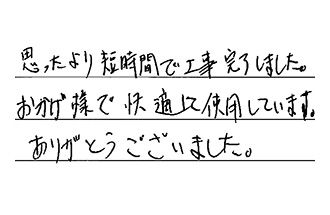 思ったより短時間で工事完了しました。
おかげ様で快適に使用しています。
ありがとうございました。